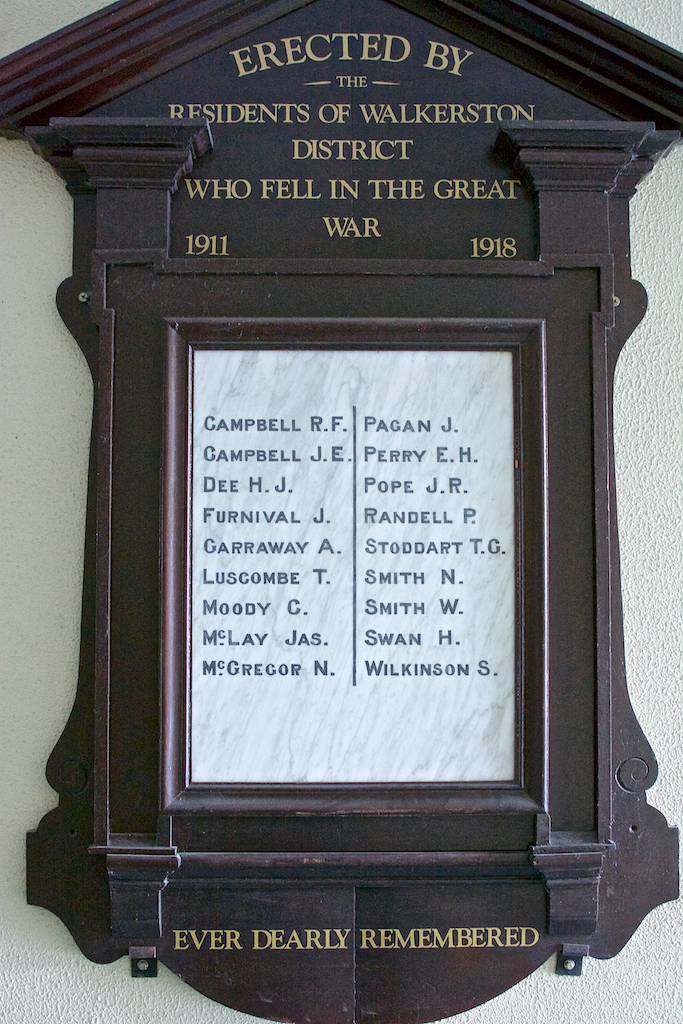 ERECTED BY
THE
RESIDENTS OF WALKERSTON
DISTRICT
WHO FELL IN THE GREAT
WAR
1911 1918
CAMPBELL R.F.
CAMPBELL J.E.
DEE H.J.
FURNIVAL J.
GARRAWAY A.
LUSCOMBE T.
MOODY C.
McLAY JAS.
McGREGOR N.
PAGAN J.
PERRY E.H.
POPE J.R.
RANDELL P.
STODDART T.G.
SMITH N.
SMITH W.
SWAN H.
WILKINSON S.
EVER DEARLY REMEMBERED